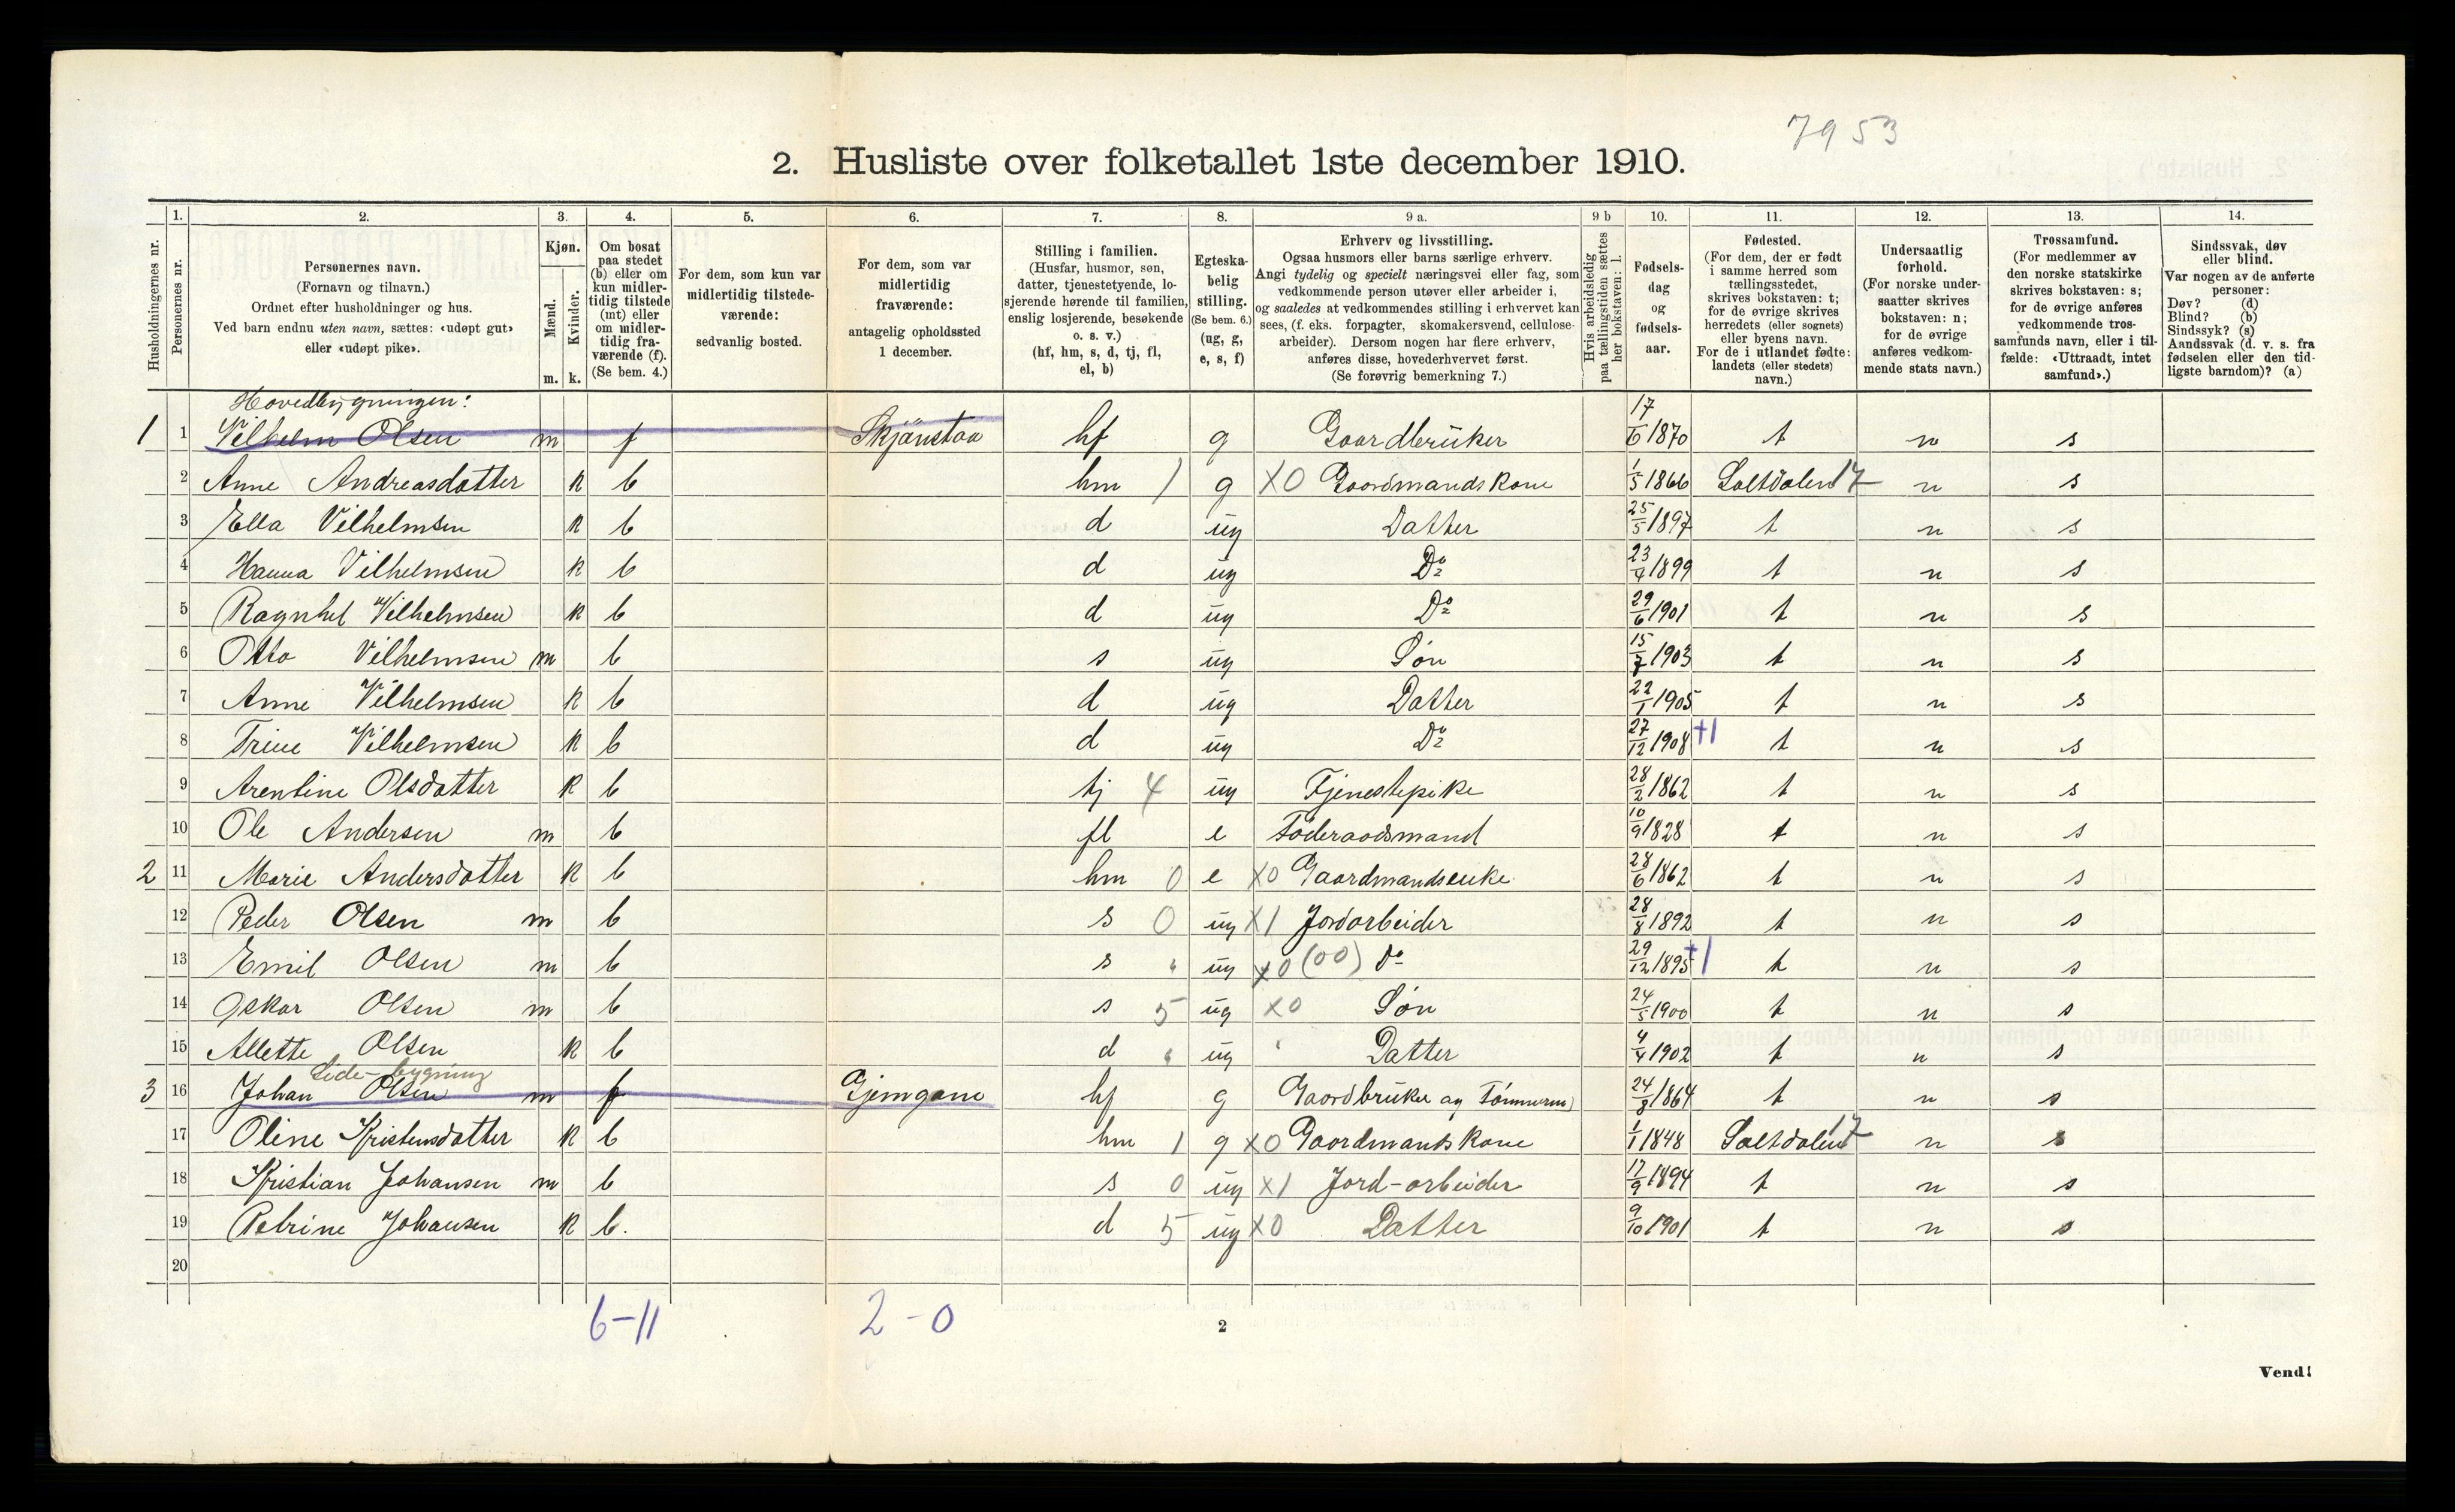 7953
2. Husliste over folketallet 1ste december 1910.
1. 2. 3. 4. 5. 6. 7. 8. 9 a. 9 b 10. 11. 12. 13. 14.
Husholdningernes nr.
Personernes nr.
Personernes navn.
(Fornavn og tilnavn.)
Ordnet efter husholdninger og hus.
Ved barn endnu uten navn, sættes: «udøpt gut»
eller «udøpt pike».
Kjøn.
Mænd.
Kvinder.
m. k.
Om bosat
paa stedet
(b) eller om
kun midler-
tidig tilstede
(mt) eller
om midler-
tidig fra-
værende (f).
(Se bem. 4.)
For dem, som kun var
midlertidig tilstede-
værende:
sedvanlig bosted.
For dem, som var
midlertidig
fraværende:
antagelig opholdssted
1 december.
Stilling i familien.
(Husfar, husmor, søn,
datter, tjenestetyende, lo-
sjerende hørende til familien,
enslig losjerende, besøkende
o. s. v.)
(hf, hm, s, d, tj, fl,
el, b)
Egteska-
belig
stilling.
(Se bem. 6.)
(ug, g,
e, s, f)
Erhverv og livsstilling.
Ogsaa husmors eller barns særlige erhverv.
Angi tydelig og specielt næringsvei eller fag, som
vedkommende person utøver eller arbeider i,
og saaledes at vedkommendes stilling i erhvervet kan
sees, (f. eks. forpagter, skomakersvend, cellulose-
arbeider). Dersom nogen har flere erhverv,
anføres disse, hovederhvervet først.
(Se forøvrig bemerkning 7.)
Hvis arbeidsledig
paa tællingstiden sættes
her bokstaven: l.
Fødsels-
dag
og
fødsels-
aar.
Fødested.
(For dem, der er født
i samme herred som
tællingsstedet,
skrives bokstaven: t;
for de øvrige skrives
herredets (eller sognets)
eller byens navn.
For de i utlandet fødte:
landets (eller stedets)
navn.)
Undersaatlig
forhold.
(For norske under-
saatter skrives
bokstaven: n;
for de øvrige
anføres vedkom-
mende stats navn.)
Trossamfund.
(For medlemmer av
den norske statskirke
skrives bokstaven: s;
for de øvrige anføres
vedkommende tros-
samfunds navn, eller i til-
fælde: «Uttraadt, intet
samfund».)
Sindssvak, døv
eller blind.
Var nogen av de anførte
personer:
Døv? (d)
Blind? (b)
Sindssyk? (s)
Aandssvak (d. v. s. fra
fødselen eller den tid-
ligste barndom)? (a)
Hovedbygningen:
1 1 Vilhelm Olsen m f Skjånstaa hf g Gaardbrüker 17/6 1870 t n s
2 Anne Andreasdatter k b hm 1 g X0 Gaardmandskone 1/5 1866 Saltdalen 17 n s
3 Ella Vilhelmsen k b d üg Datter 25/5 1897 t n s
4 Hanna Vilhelmsen k b d üg Do 23/4 1899 t n s
5 Ragnhel Vilhelmsen k b d üg Do 29/6 1901 t n s
6 Otto Vilhelmsen m b s üg Søn 15/7 1903 t n s
7 Anne Vilhelmsen k b d üg Datter 22/1 1905 t n s
8 Trine Vilhelmsen k b d üg Do 27/12 1908 +1 t n s
9 Arentine Olsdatter k b tj 4 üg Tjenestepike 28/2 1862 t n s
10 Ole Andersen m b fl e Føderaadsmand 10/9 1828 t n s
2 11 Marie Andersdatter k b hm 0 e X0 Gaardmandsenke 28/6 1862 t n s
12 Peder Olsen m b s 0 üg X1 Jordarbeider 28/8 1892 t n s
13 Emil Olsen m b s " üg X0 (00) Do 29/12 1895 +1 t n s
14 Oskar Olsen m b s 5 üg X0 Søn 24/5 1900 t n s
15 Allette Olsen k b d " üg " Datter 4/4 1902 t n s
Side-bygning
3 16 Johan Olsen m f Gjemgam hf g Gaardbrüker og Tømmerm) 24/8 1864 t n s
17 Oline Kristensdatter k b hm 1 g X0 Gaardmandskone 1/1 1848 Saltdalen 17 n s
18 Kristian Johansen m b s 0 üg X1 Jord-arbeider 17/9 1894 t n s
19 Petrine Johansen k b. d 5 üg X0 Datter 9/10 1901 t n s
20
6-11 2-0
2
Vend!